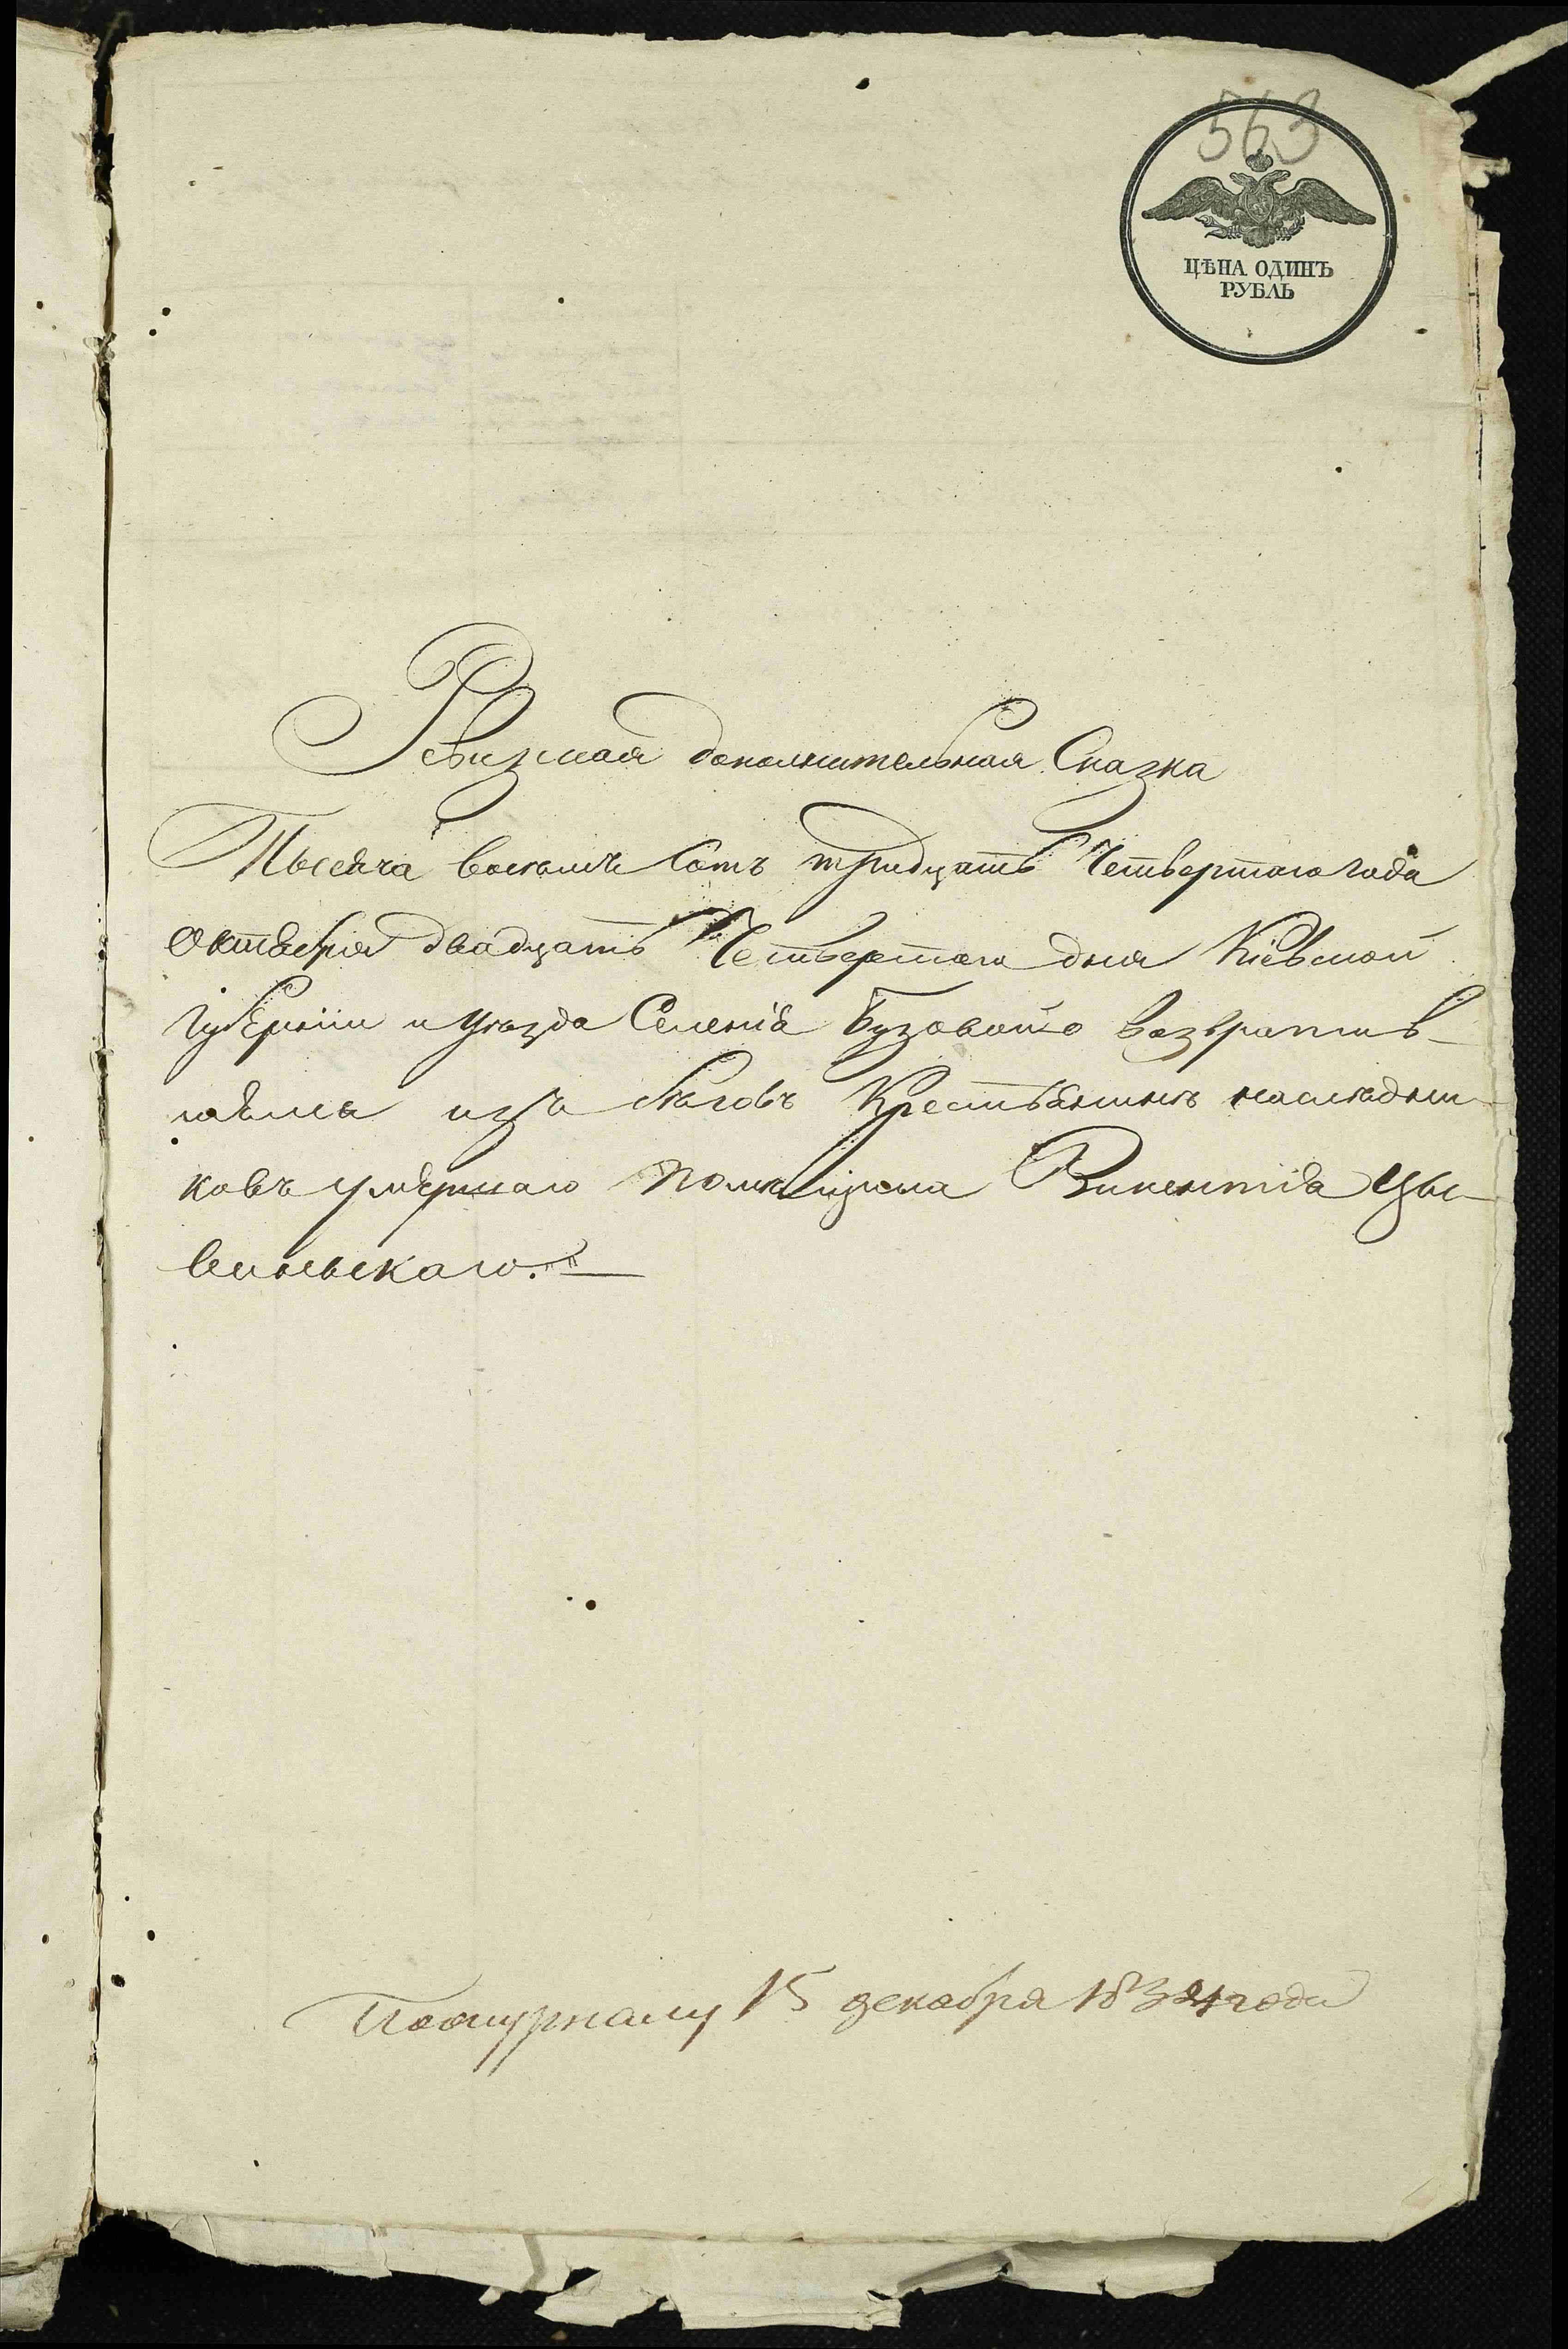 563
ЦѢНА ОДИНЪ
РУБЛЬ
Ревизкая дополнительная Сказка
Тысяча восемь Сотъ тридцать Четвертаго года
Октября двадцать Четвертаго дня Кіевской
Губерніи и уѣзда Селенія Бузоваго возвратив-
шемся изъ бѣговъ Крестьянинѣ наслѣдни-
ковъ умершаго помѣщика Викентія Цы-
винскаго.
По журналу 15 декабря 1834 года